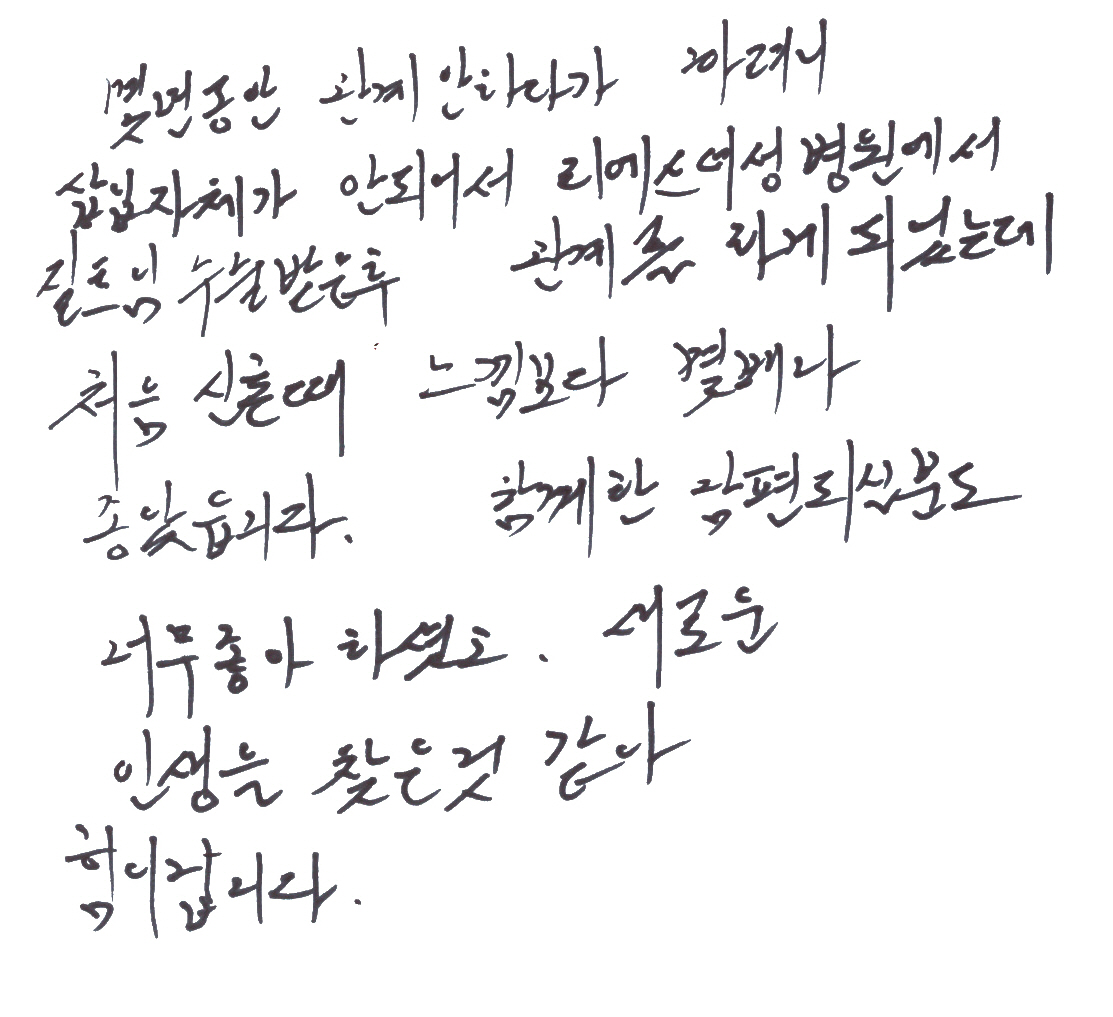 몇년동안 관계안하다가 하려니
삽입자체가 안되어서 리에스여성병원에서
질쪼임 수술받은후 관계를 하게되었는데
처음 신혼때 느낌보다 몇배나
좋았습니다. 함께한 남편되신분도
너무좋아 하셨고. 새로운
인생을 찾은것 같아
힘이납니다.